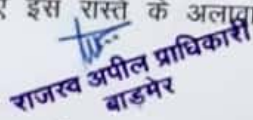 इस रास्ते के अलावा
राजस्व अपील प्राधिकारी
बाडमेर